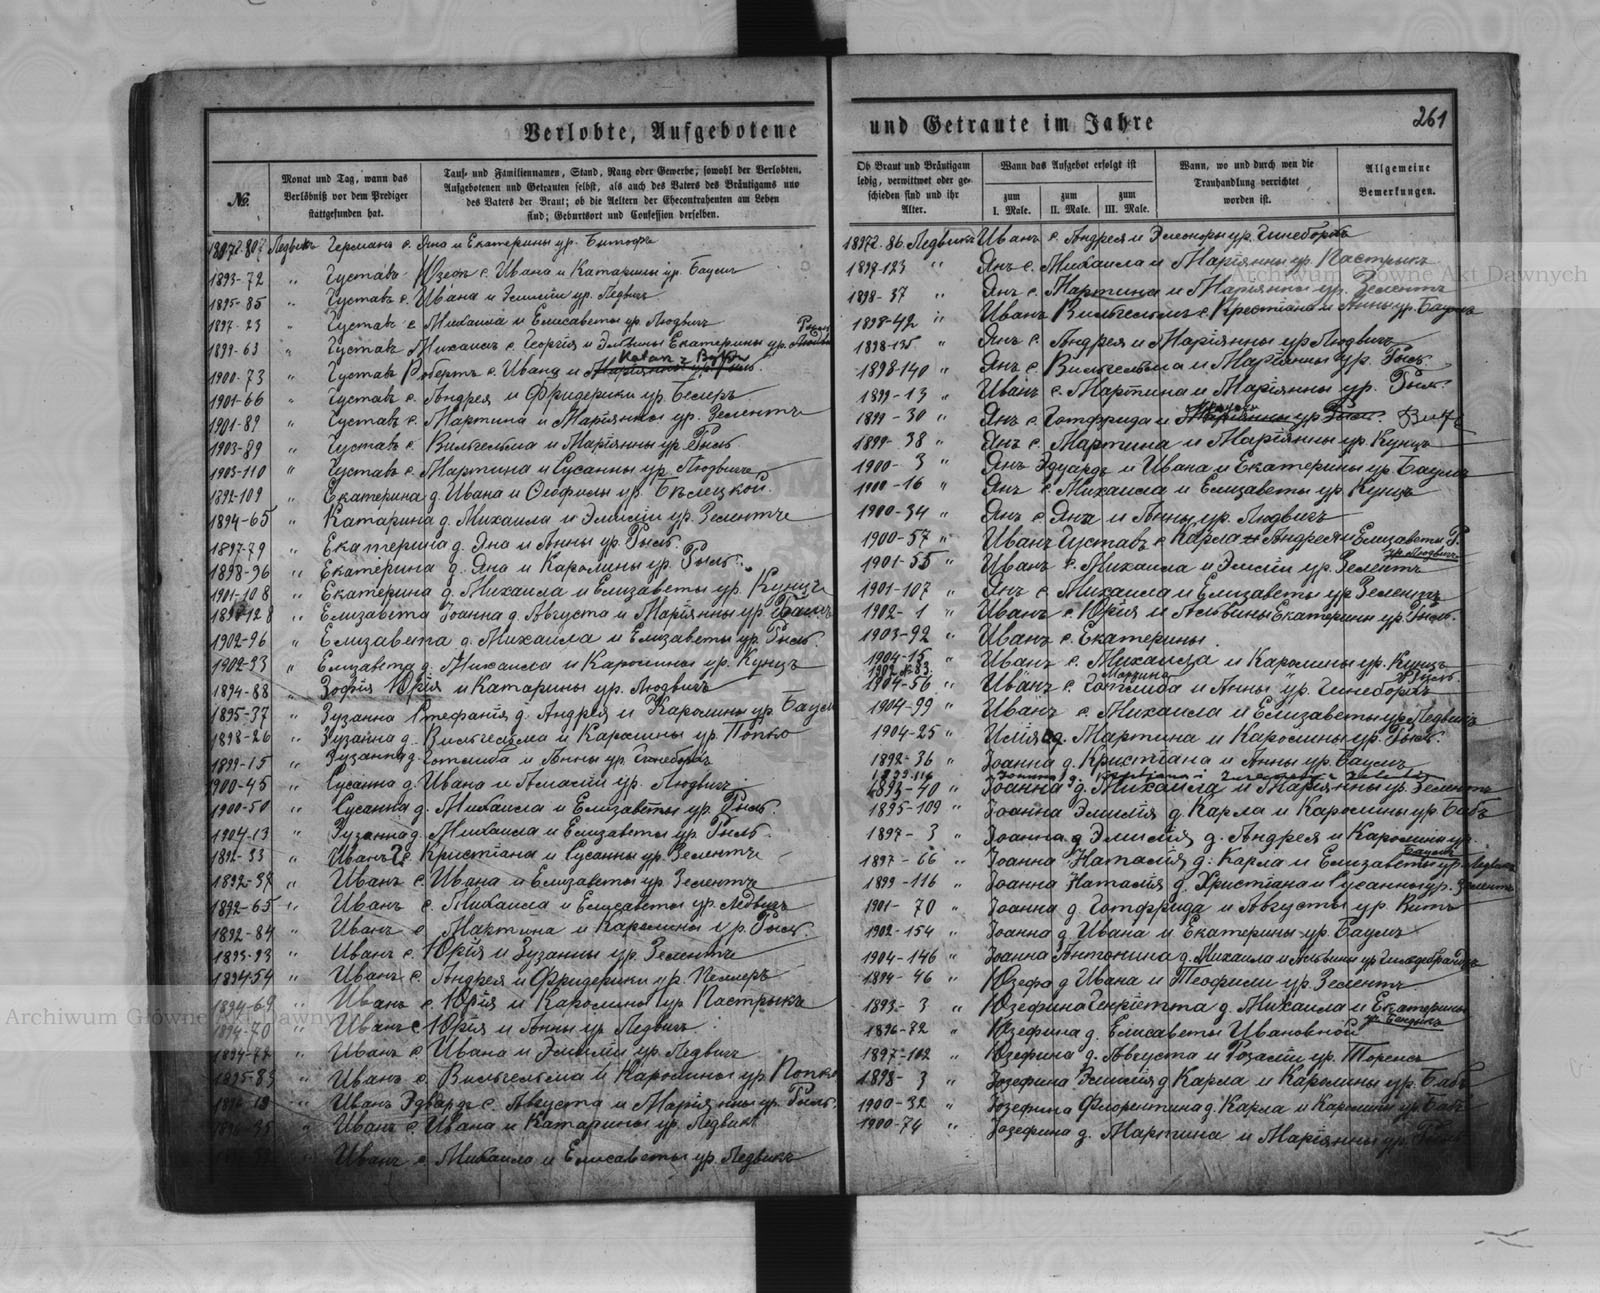 Verlobte, Aufgebotene
und Getraute im Jahre
261
№.
Monat und Tag, wann das Verlöbniß vor dem Prediger stattgefunden hat.
Tauf- und Familiennamen, Stand, Rang oder Gewerbe; sowohl der Verlobten,
Aufgebotenen und Getrauten selbst, als auch des Vaters des Bräutigams und
des Vaters der Braut; ob die Aeltern der Ehecontrahenten am Leben
sind; Geburtsort und Confession derselben.
Ob Braut und Bräutigam ledig, verwittwet oder geschieden sind und ihr Alter.
Wann das Aufgebot erfolgt ist
zum I. Male.
zum II. Male.
zum III. Male.
Wann, wo und durch wen die Trauhandlung verrichtet worden ist.
Allgemeine Bemerkungen.
Германъ с. Яна и Екатерины ур.
1893-72 " Густавъ Юзефъ с. Ивана и Катарины ур. Баумъ
1895-85 " Густавъ с. Ивана и Эмилии ур. Ледвигъ
1897-23 " Густавъ с. Михаила и Елисаветы ур. Людвигъ
1899-63 " Густавъ Михаилъ с. Георгія и Эльвины Екатерины ур.
1900-73 " Густавъ Робертъ с. Ивана и
1901-66 " Густавъ с. Андрея и Фридерики ур.
1901-89 " Густавъ с. Мартина и Маріянны ур. Зелентъ
1903-89 " Густавъ с. Вильгельма и Маріянны ур. Рысь
1903-110 " Густавъ с. Мартина и Сусанны ур. Людвигъ
1892-109 " Екатерина д. Ивана и Теофилы ур. Бѣлецкой
1894-65 " Катарина д. Михаила и Эмиліи ур. Зелентъ
1897-79 " Екатерина д. Яна и Анны ур. Рысь
1898-96 " Екатерина д. Яна и Каролины ур. Рысь
1901-108 " Екатерина д. Михаила и Елизаветы ур. Кунцъ
Елизавета Іоанна д. Августа и Маріянны ур. Баумъ
1902-96 " Елизавета д. Михаила и Елизаветы ур. Рысь
1902-23 " Елизавета д. Михаила и Каролины ур. Кунцъ
1894-88 " Зофія Юрія и Катарины ур. Людвигъ
1895-37 " Зузанна Стефанія д. Андрея и Каролины ур. Баумъ
1898-26 " Зузанна д. Вильгельма и Каролины ур. Попко
1899-15 " Зузанна д. Готлиба и Анны ур. Гинеборгъ
1900-45 " Сусанна д. Ивана и Амаліи ур. Людвигъ
1900-50 " Сусанна д. Михаила и Елизаветы ур. Рысь
1904-13 " Зузанна д. Михаила и Елизаветы ур. Рысь
1892-33 " Иванъ с. Кристіана и Сусанны ур. Зелентъ
1892-37 " Иванъ с. Ивана и Елизаветы ур. Зелентъ
1892-65 " Иванъ с. Михаила и Елисаветы ур. Ледвигъ
1892-84 " Иванъ с. Мартина и Каролины ур. Рысь
1893-93 " Иванъ с. Юрія и Зузанны ур. Зелентъ
1894-54 " Иванъ с. Андрея и Фридерики ур. Пеллеръ
1894-69 " Иванъ с. Юрія и Каролины ур. Пастрыкъ
1894-70 " Иванъ с. Юрія и Анны ур. Ледвигъ
1894-72 " Иванъ с. Ивана и Эмиліи ур. Ледвигъ
1895-83 " Иванъ с. Вильгельма и Каролины ур. Попко
Иванъ Эдвардъ с. Августа и Маріянны ур. Рысь
Иванъ с. Ивана и Катарины ур. Ледвигъ
Иванъ с. Михаила и Елисаветы ур. Ледвигъ
Иванъ с. Андрея и Элеоноры ур. Гинеборгъ
1897-123 " Янъ с. Михаила и Маріянны ур. Пастрыкъ
1898-37 " Янъ с. Мартина и Маріянны ур. Зелентъ
1898-42 " Иванъ Вильгельмъ с. Кристіана и Анны ур. Баумъ
1898-125 " Янъ с. Андрея и Маріянны ур. Людвигъ
1898-140 " Янъ с. Вильгельма и Маріянны ур. Рысь
1899-13 " Иванъ с. Мартина и Маріянны ур. Рысь
1899-30 " Янъ с. Готфрида и
1899-38 " Янъ с. Мартина и Маріянны ур. Кунцъ
1900-3 " Янъ Эдуардъ и Ивана и Екатерины ур. Баумъ
1900-16 " Янъ с. Михаила и Елизаветы ур. Кунцъ
1900-34 " Янъ с. Яна и Анны ур. Людвигъ
1900-57 " Иванъ Густавъ с. Карла Андрея и Елизаветы Р.
ур. Людвигъ
1901-55 " Иванъ с. Михаила и Эмиліи ур. Зелентъ
1901-107 " Янъ с. Михаила и Елизаветы ур. Зелентъ
1902-1 " Иванъ с. Юрія и Альвины Екатерины ур. Рысь
1903-92 " Иванъ с. Екатерины
1904-15 " Иванъ с. Михаила и Каролины ур. Кунцъ
1904-56 " Иванъ с. Готлиба и Анны ур. Гинеборгъ
1904-99 " Иванъ с. Михаила и Елизаветы ур. Ледвигъ
1904-25 " Юлія д. Мартина и Каролины ур. Рысь
1892-36 " Іоанна д. Кристіана и Анны ур. Баумъ
1893-40 " Іоанна д. Михаила и Маріянны ур. Зелентъ
1895-109 " Іоанна Эмилія д. Карла и Каролины ур. Бабъ
1897-3 " Іоанна Эмилія д. Андрея и Каролины ур.
Баумъ
1897-66 " Іоанна Наталія д. Карла и Елизаветы ур. Ледвигъ
1899-116 " Іоанна Наталія д. Христіана и Сусанны ур. Зелентъ
1901-70 " Іоанна д. Готфрида и Августы ур. Витъ
1902-154 " Іоанна д. Ивана и Екатерины ур. Баумъ
1904-146 " Іоанна Антонина д. Михаила и Альвины ур. Гильдебрандтъ
1894-46 " Юзефа д. Ивана и Теофили ур. Зелентъ
1893-3 " Юзефина Генріетта д. Михаила и Екатерины
1896-72 " Юзефина д. Елисаветы Ивановной
1897-102 " Юзефина д. Августа и Розаліи ур.
1898-3 " Іозефина Эмилія д. Карла и Каролины ур. Бабъ
1900-32 " Іозефина Флорентина д. Карла и Каролины ур. Бабъ
1900-74 " Іозефина д. Мартина и Маріянны ур. Рысь
Archiwum Główne Akt Dawnych
Archiwum Główne Akt Dawnych